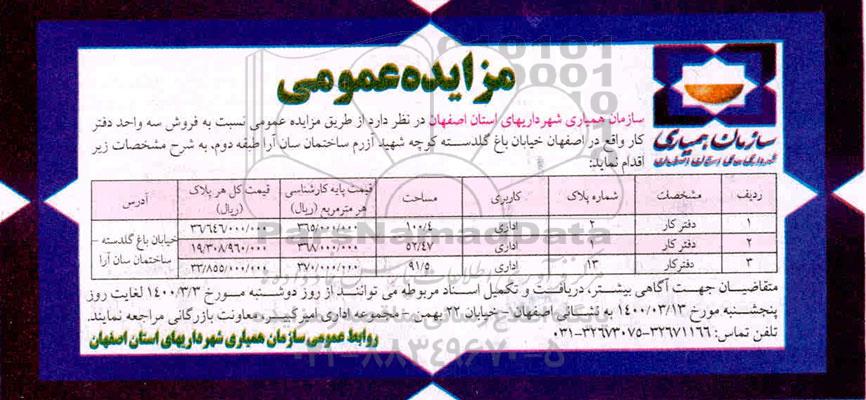 مزایده عمومی
سازمان همیاری شهرداریهای استان اصفهان
سازمان همیاری شهرداریهای استان اصفهان در نظر دارد از طریق مزایده عمومی نسبت به فروش سه واحد دفتر
کار واقع در اصفهان خیابان باغ گلدسته کوچه شهید آزرم ساختمان سان آرا طبقه دوم، به شرح مشخصات زیر
اقدام نماید:
ردیف مشخصات شماره پلاک کاربری مساحت قیمت پایه کارشناسی هر مترمربع (ریال) قیمت کل هر پلاک (ریال) آدرس
۱ دفتر کار ۲ اداری ۱۰۰/۴ ۳۶۵/۰۰۰/۰۰۰ ۳۶/۶۴۶/۰۰۰/۰۰۰ خیابان باغ گلدسته – ساختمان سان آرا
۲ دفتر کار اداری ۵۲/۴۷ ۳۶۸/۰۰۰/۰۰۰ ۱۹/۳۰۸/۹۶۰/۰۰۰
۳ دفترکار ۱۳ اداری ۹۱/۵ ۳۷۰/۰۰۰/۰۰۰ ۳۳/۸۵۵/۰۰۰/۰۰۰
متقاضیان جهت آگاهی بیشتر، دریافت و تکمیل اسناد مربوطه می توانند از روز دوشنبه مورخ ۱۴۰۰/۳/۳ لغایت روز
پنجشنبه مورخ ۱۴۰۰/۰۳/۱۳ به نشانی اصفهان - خیابان ۲۲ بهمن - مجموعه اداری امیرکبیر، معاونت بازرگانی مراجعه نمایند.
تلفن تماس: ۳۲۶۷۱۱۶۶-۳۲۶۷۳۰۷۵-۰۳۱
روابط عمومی سازمان همیاری شهرداریهای استان اصفهان
ParsNamadData
۰۲۱-۸۸۳۴۹۶۷۰-۵